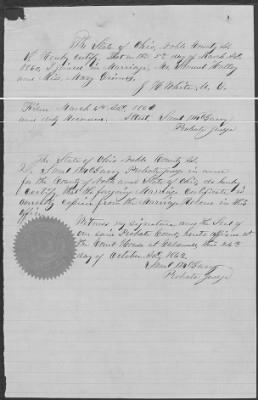 The State of Ohio, Noble County ss.
I Hereby Certify, That on the 5th day of March AD.
1860, I joined in Marriage, Mr Samuel
and Miss Mary
J. W. White, M. G.
Filed March 6th AD. 1860
and duly Recorded. Attest Saml McGarry
Probate Judge
The State of Ohio Noble County ss.
I, Saml McGarry Probate Judge in and
for the County of Noble and State of Ohio do hereby
Certify that the foregoing Marriage Certificate is
correctly copied from the Marriage Record in this
office.
Witness my signature and the Seal of
our said Probate Court, hereto affixed at
the Court House at Caldwell this 24th
day of October AD. 1862.
Saml McGarry
Probate Judge